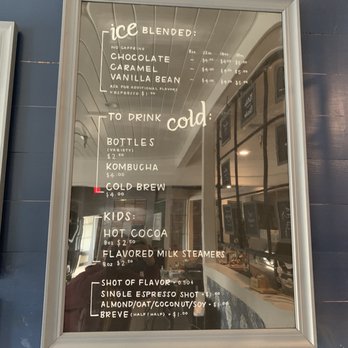 ice BLENDED:
NO CAFFEINE
CHOCOLATE
CARAMEL
VANILLA BEAN
ASK FOR ADDITIONAL FLAVORS
+ ESPRESSO $1.00
TO DRINK cold:
BOTTLES
(VARIETY)
$2.50
KOMBUCHA
COLD BREW
$4.00
KIDS:
HOT COCOA
8oz $2.50
FLAVORED MILK STEAMERS
8oz $2.50
SHOT OF FLAVOR = 0.50¢
SINGLE ESPRESSO SHOT = $1.00
ALMOND/OAT/COCONUT/SOY = $1.00
BREVE (HALF/HALF) = $1.00